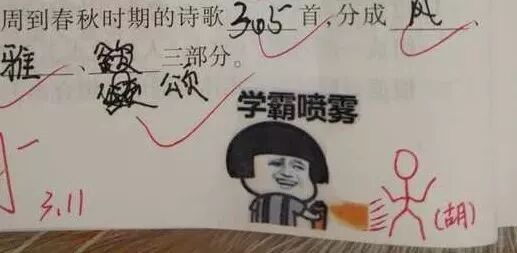 周到春秋时期的诗歌 305 首,分成 风 、
雅 、 三部分。
颂
学霸喷雾
3.11
(胡)